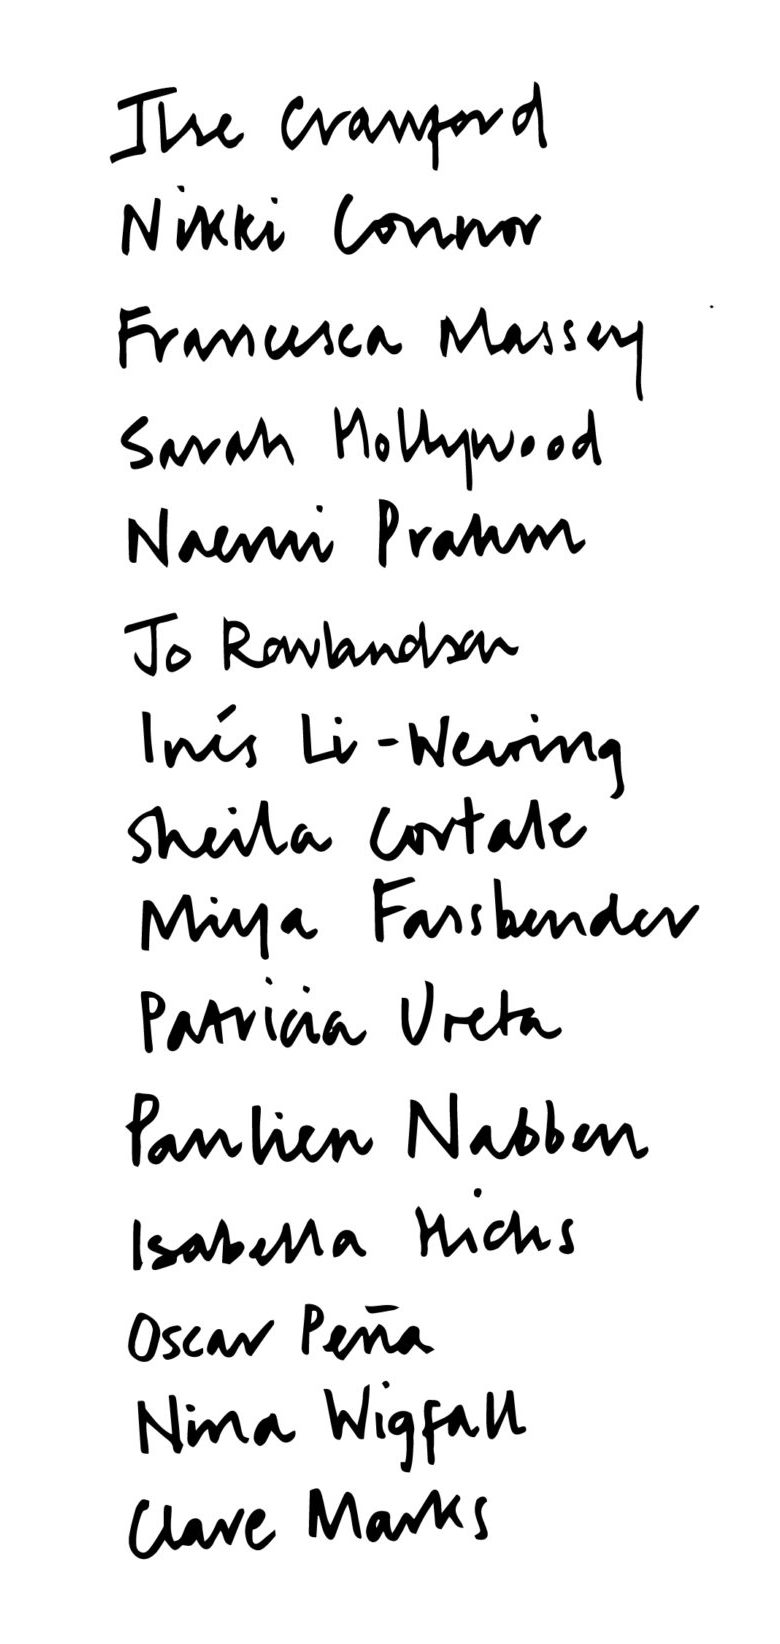 Ilse Crawford
Nikki Connor
Francesca Massey
Sarah Hollywood
Naemi Prahm
Jo Rowlandson
Inés Li-Wearing
Sheila Cortale
Miya Fassbender
Patricia Ureta
Paulien Nabben
Isabella Hicks
Oscar Peña
Nina Wigfall
Clare Marks